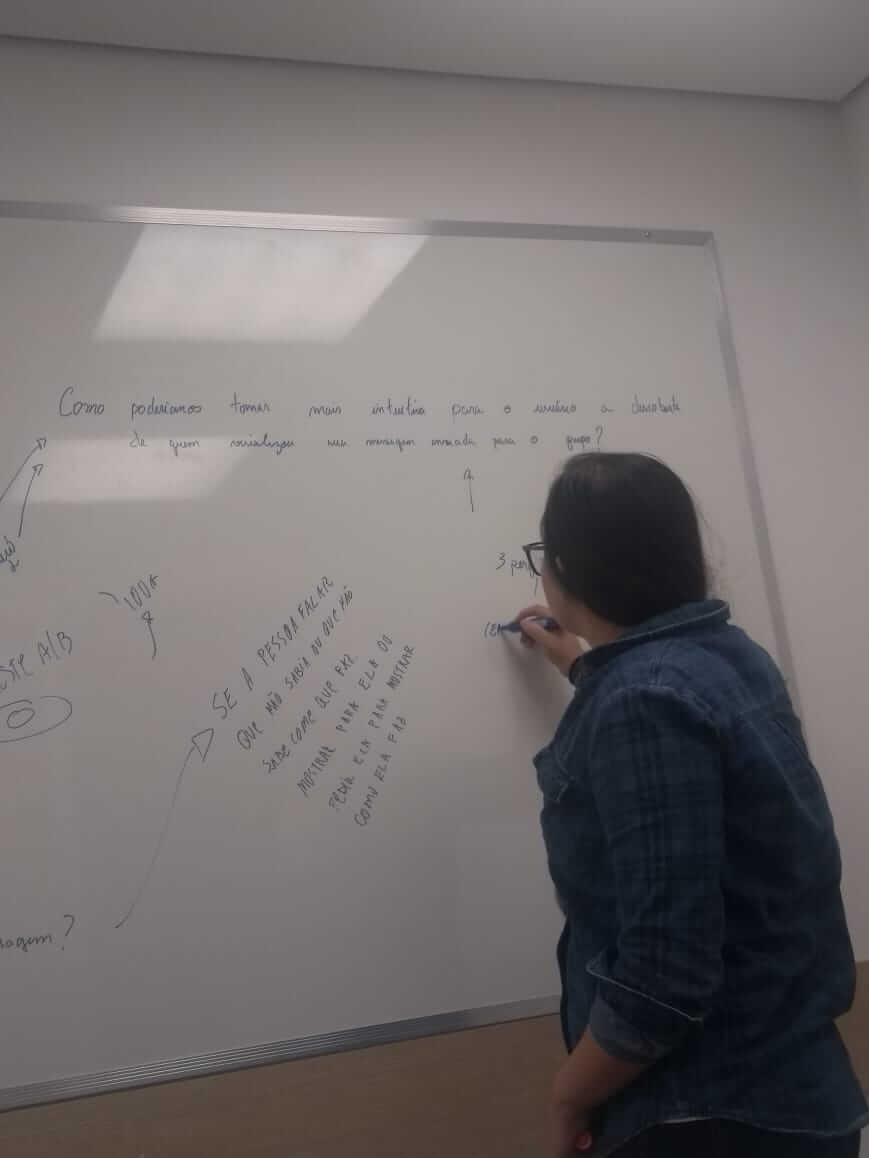 Como poderiamos tornar mais intuitiva para o usuário a descoberta
de quem visualizou sua mensagem enviada para o grupo?
3
100%
TESTE A/B
SE A PESSOA FALAR
QUE NÃO SABIA OU QUE NÃO
SABE COMO QUE FAZ
MOSTRAR PARA ELA OU
PEDIR ELA PARA MOSTRAR
COMO ELA FAZ
sagem?